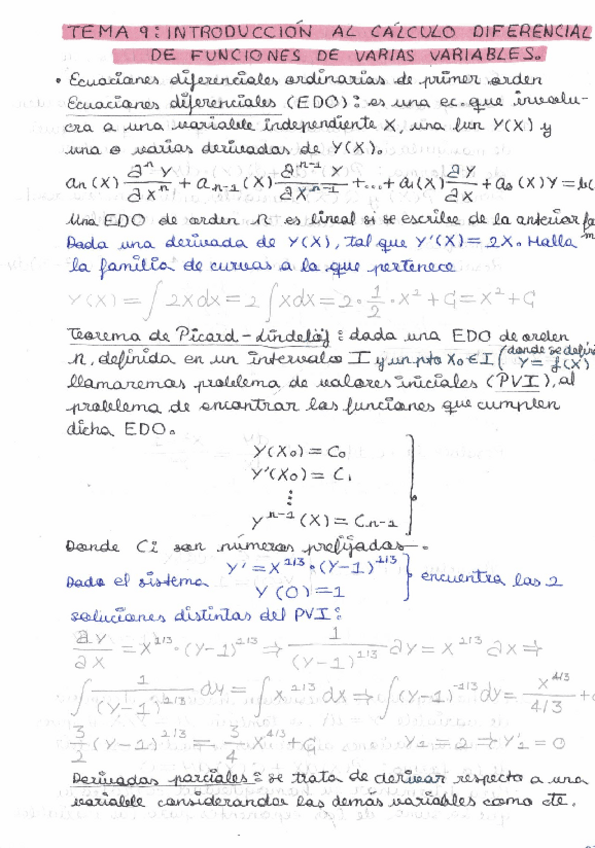 TEMA 9: INTRODUCCIÓN AL CÁLCULO DIFERENCIAL
DE FUNCIONES DE VARIAS VARIABLES.
• Ecuaciones diferenciales ordinarias de primer orden
Ecuaciones diferenciales (EDO): es una ec. que involu-
cra a una variable independiente X, una fun Y(X) y
una o varias derivadas de Y(X).
an(X) ∂ⁿY/∂Xⁿ + an-1(X) ∂ⁿ⁻¹Y/∂Xⁿ⁻¹ + ... + a1(X) ∂Y/∂X + a0(X)Y = b(
Una EDO de orden n es lineal si se escribe de la anterior
Dada una derivada de Y(X), tal que Y'(X) = 2X. Halla
la familia de curvas a la que pertenece
Y(X) = ∫2XdX = 2∫XdX = 2·1/2·X² + C = X² + C
Teorema de Picard-Lindelöf: dada una EDO de orden
n, definida en un intervalo I y un pto X0 ∈ I (donde se defin Y = f(X)
llamaremos problema de valores iniciales (PVI), al
problema de encontrar las funciones que cumplen
dicha EDO.
Y(X0) = C0
Y'(X0) = C1
⋮
Yⁿ⁻¹(X) = Cn-1
Donde Ci son números prefijados.
Y' = X^1/3·(Y-1)^1/3
Dado el sistema } encuentra las 2
Y(0) = 1
soluciones distintas del PVI:
∂Y/∂X = X^1/3·(Y-1)^1/3 ⇒ 1/(Y-1)^1/3 ∂Y = X^1/3 ∂X ⇒
∫ 1/(Y-1)^1/3 dY = ∫X^1/3 dX ⇒ ∫(Y-1)^-1/3 dY = X^4/3 / 4/3 +
3/2 (Y-1)^2/3 = 3/4 X^4/3 + C Y1 = 2 ⇒ Y'1 = 0
Derivadas parciales: se trata de derivar respecto a una
variable considerando las demás variables como cte.